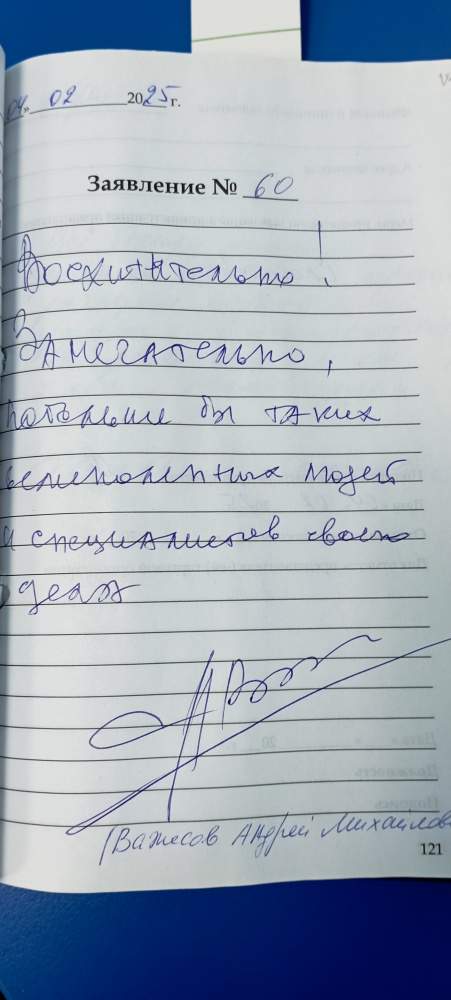 04» 02 2025г.
Заявление № 60
Восхитительно!
Замечательно,
побольше бы таких
великолепных людей
и специалистов своего
дела
Андрей Михайлов
121